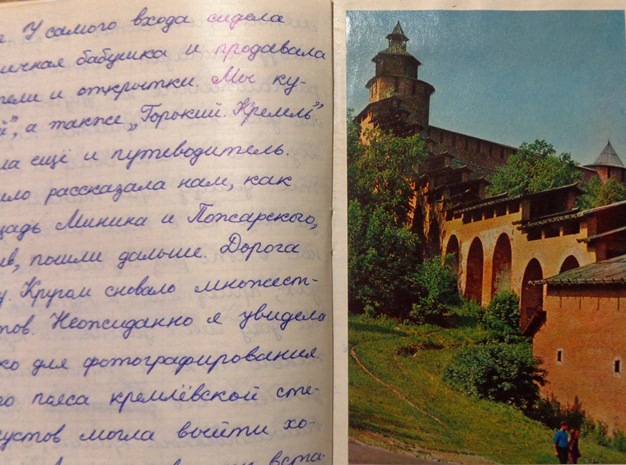 У самого входа сидела
бабушка и продавала
и открытки. Мы ку-
а также „Горький. Кремль".
ла ещё и путеводитель.
ло рассказала нам, как
щадь Миника и Пожарского,
ив, пошли дальше. Дорога
у. Кругом сновало множест-
тов. Неожиданно я увидела
ко для фотографирования
го пояса кремлёвской сте-
кустов могла выйти хо-
вста-